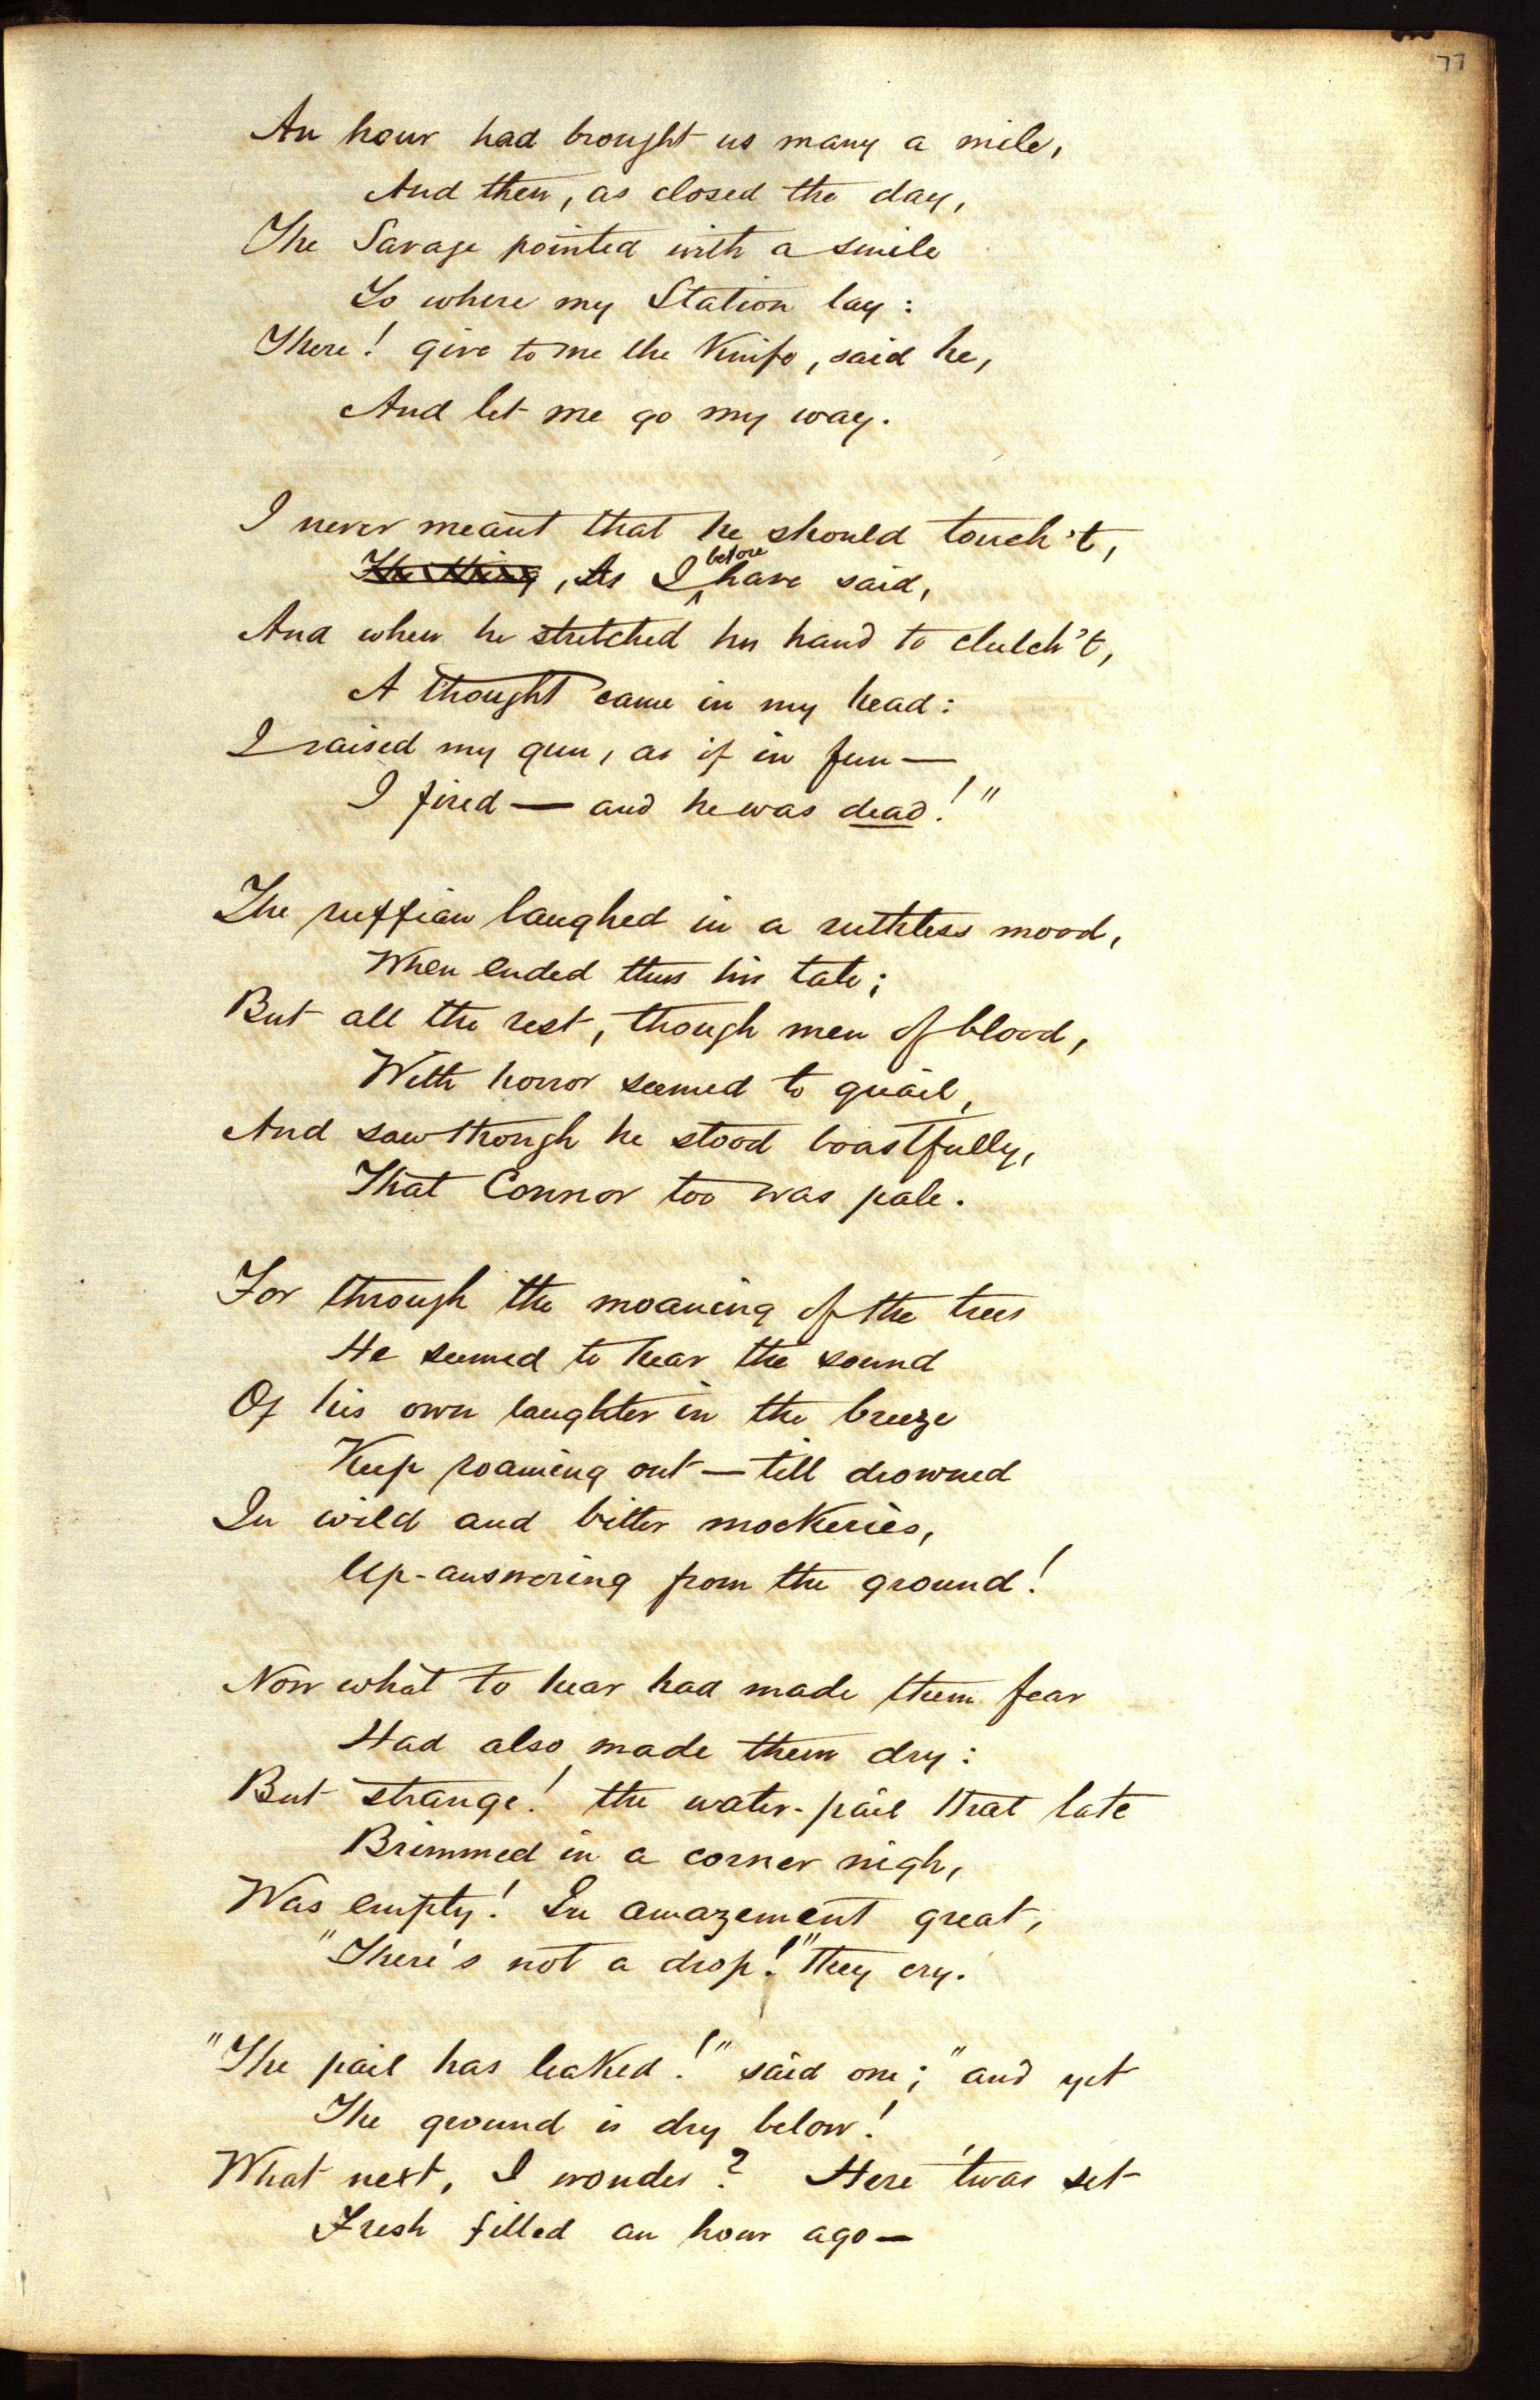 77
An hour had brought us many a mile,
And then, as closed the day,
The Savage pointed with a smile
To where my Station lay:
There! give to me the Knife, said he,
And let me go my way.
I never meant that he should touch't,
, As I before have said,
And when he stretched his hand to clutch't,
A thought came in my head:
I raised my gun, as if in fun—
I fired — and he was dead!"
The ruffian laughed in a ruthless mood,
When ended thus his tale;
But all the rest, though men of blood,
With horror seemed to quail,
And saw though he stood boastfully,
That Connor too was pale.
For through the moaning of the trees
He seemed to hear the sound
Of his own laughter in the breeze
Keep roaming out — till drowned
In wild and bitter mockeries,
Up-answering from the ground!
Now what to hear had made them fear
Had also made them dry:
But strange! the water-pail that late
Brimmed in a corner nigh,
Was empty! In amazement great,
"There's not a drop!" they cry.
"The pail has leaked!" said one; "and yet
The ground is dry below!
What next, I wonder? Here 'twas set
Fresh filled an hour ago—